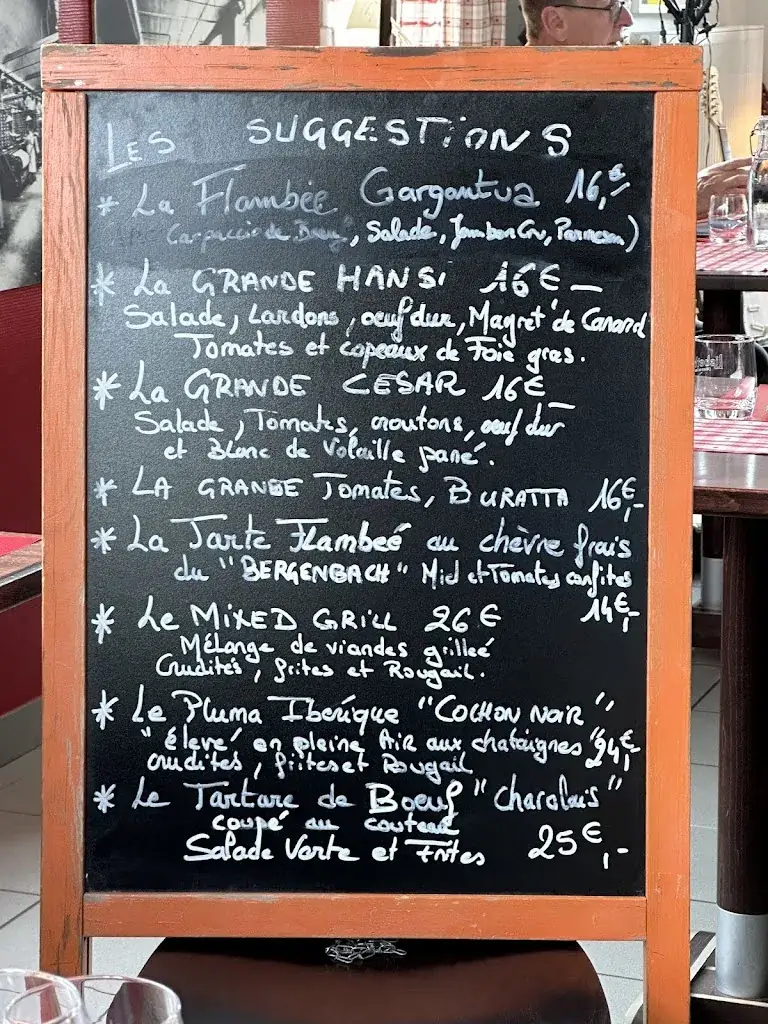 LES SUGGESTIONS
* La Flambée Gargantua 16,€
(Carpaccio de Boeuf, Salade, Jambon Cru, Parmesan)
* La GRANDE HANSI 16€—
Salade, Lardons, oeuf dur, Magret de Canard
Tomates et copeaux de Foie gras.
* La GRANDE CESAR 16€—
Salade, Tomates, croutons, oeuf dur
et Blanc de Volaille pané.
* LA GRANDE Tomates, BURATTA 16€,-
* La Tarte Flambeé au chèvre frais
du "BERGENBACH" Miel et Tomates confites
14€,-
* Le MIXED GRILL 26€
Mélange de viandes grilleé
Crudités, frites et Rougail.
* Le Pluma Iberique "COCHON NOIR"
"élevé en pleine Air aux chataignes" 24€,-
crudités, frites et Rougail
* Le Tartare de Boeuf "charolais"
coupé au couteau
Salade Verte et Frites 25€,-